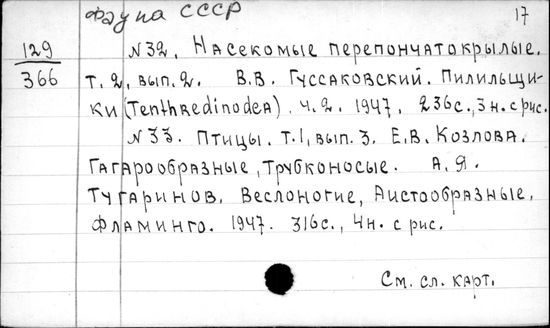 Фауна СССР
17
129
366
N32. Насекомые перепончатокрылые.
т. 2, вып. 2. В.В. Гуссаковский. Пилильщи-
ки (Tenthredinodea). ч. 2. 1947. 236с., 3н. с рис.
N33. Птицы. т. 1, вып. 3. Е.В. Козлова.
Гагарообразные, Трубконосые. А. Я.
Тугаринов. Веслоногие, Аистообразные,
Фламинго. 1947. 316с., 4н. с рис.
См. сл. карт.